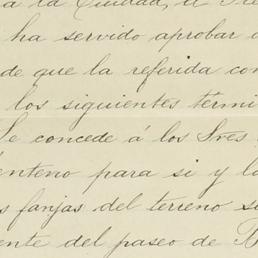 a la Ciudad, el
ha servido aprobar
de que la referida con
los siguientes termi
Se concede á los Sres
enterio para si y la
s fanjas del terreno si
ente del paseo de B